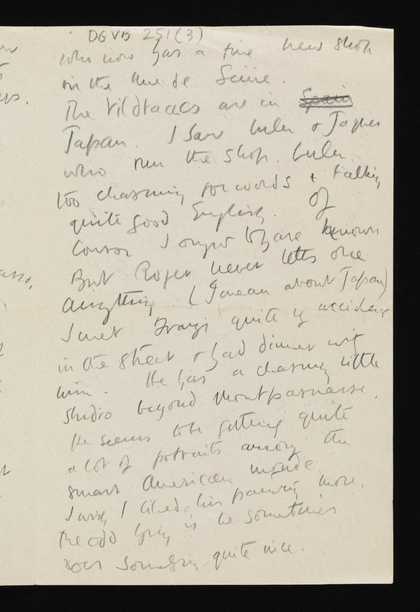 DGVB 251(3)
who now has a fine new shop
in the Rue de Seine.
The Vildracs are in Spain
Japan. I saw Lulu & Jaques
who run the shop. Lulu
too charming for words & talking
quite good English. Of
course I ought to have known
But Roger never tells one
anything (I mean about Japan)
I met quite by accident
in the street & had dinner with
him. He has a charming little
studio beyond Montparnasse.
He seems to be getting quite
a lot of portraits among the
smart American
I liked his painting more.
The odd thing is he sometimes
does something quite nice.